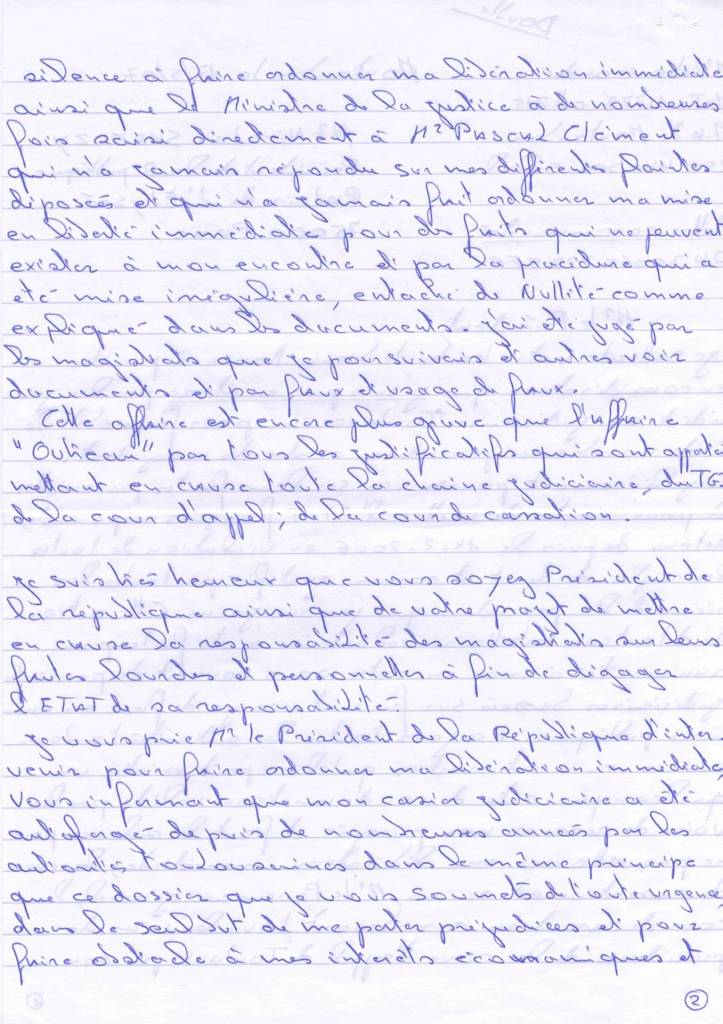 silence à faire ordonner ma libération immédiate
ainsi que le Ministre de la justice à de nombreuses
fois saisi directement à Mr PASCAL Clément
qui n'a jamais répondu sur mes differentes plaintes
diposées et qui n'a jamais fait ordonner ma mise
en liberté immédiate pour des faits qui ne peuvent
exister à mon encontre et par la procédure qui a
été mise irrégulière, entaché de Nullité comme
expliqué dans les documents. j'ai été jugé par
les magistrats que je poursuivais et autres voir
documents et par faux et usage de faux.
Cette affaire est encore plus grave que l'affaire
"Outreau" par tous les justificatifs qui sont apportés
mettant en cause toute la chaine judiciaire, du TGI
de la cour d'appel; de la cour de cassation.
je suis très heureux que vous soyez Président de
la république ainsi que de votre projet de mettre
en cause la responsabilité des magistrats sur leurs
fautes lourdes et personnelles à fin de dégager
l'ETAT de sa responsabilité.
je vous prie Mr le Président de la République d'inter-
venir pour faire ordonner ma libération immédiate,
Vous informant que mon casier judiciaire a été
autoforgé depuis de nombreuses années par les
autorités Toulousaines dans le même principe
que ce dossier que je vous soumets de toute urgence,
dans le seul but de me porter préjudices et pour
faire obstacle à mes intérêts économiques et
2